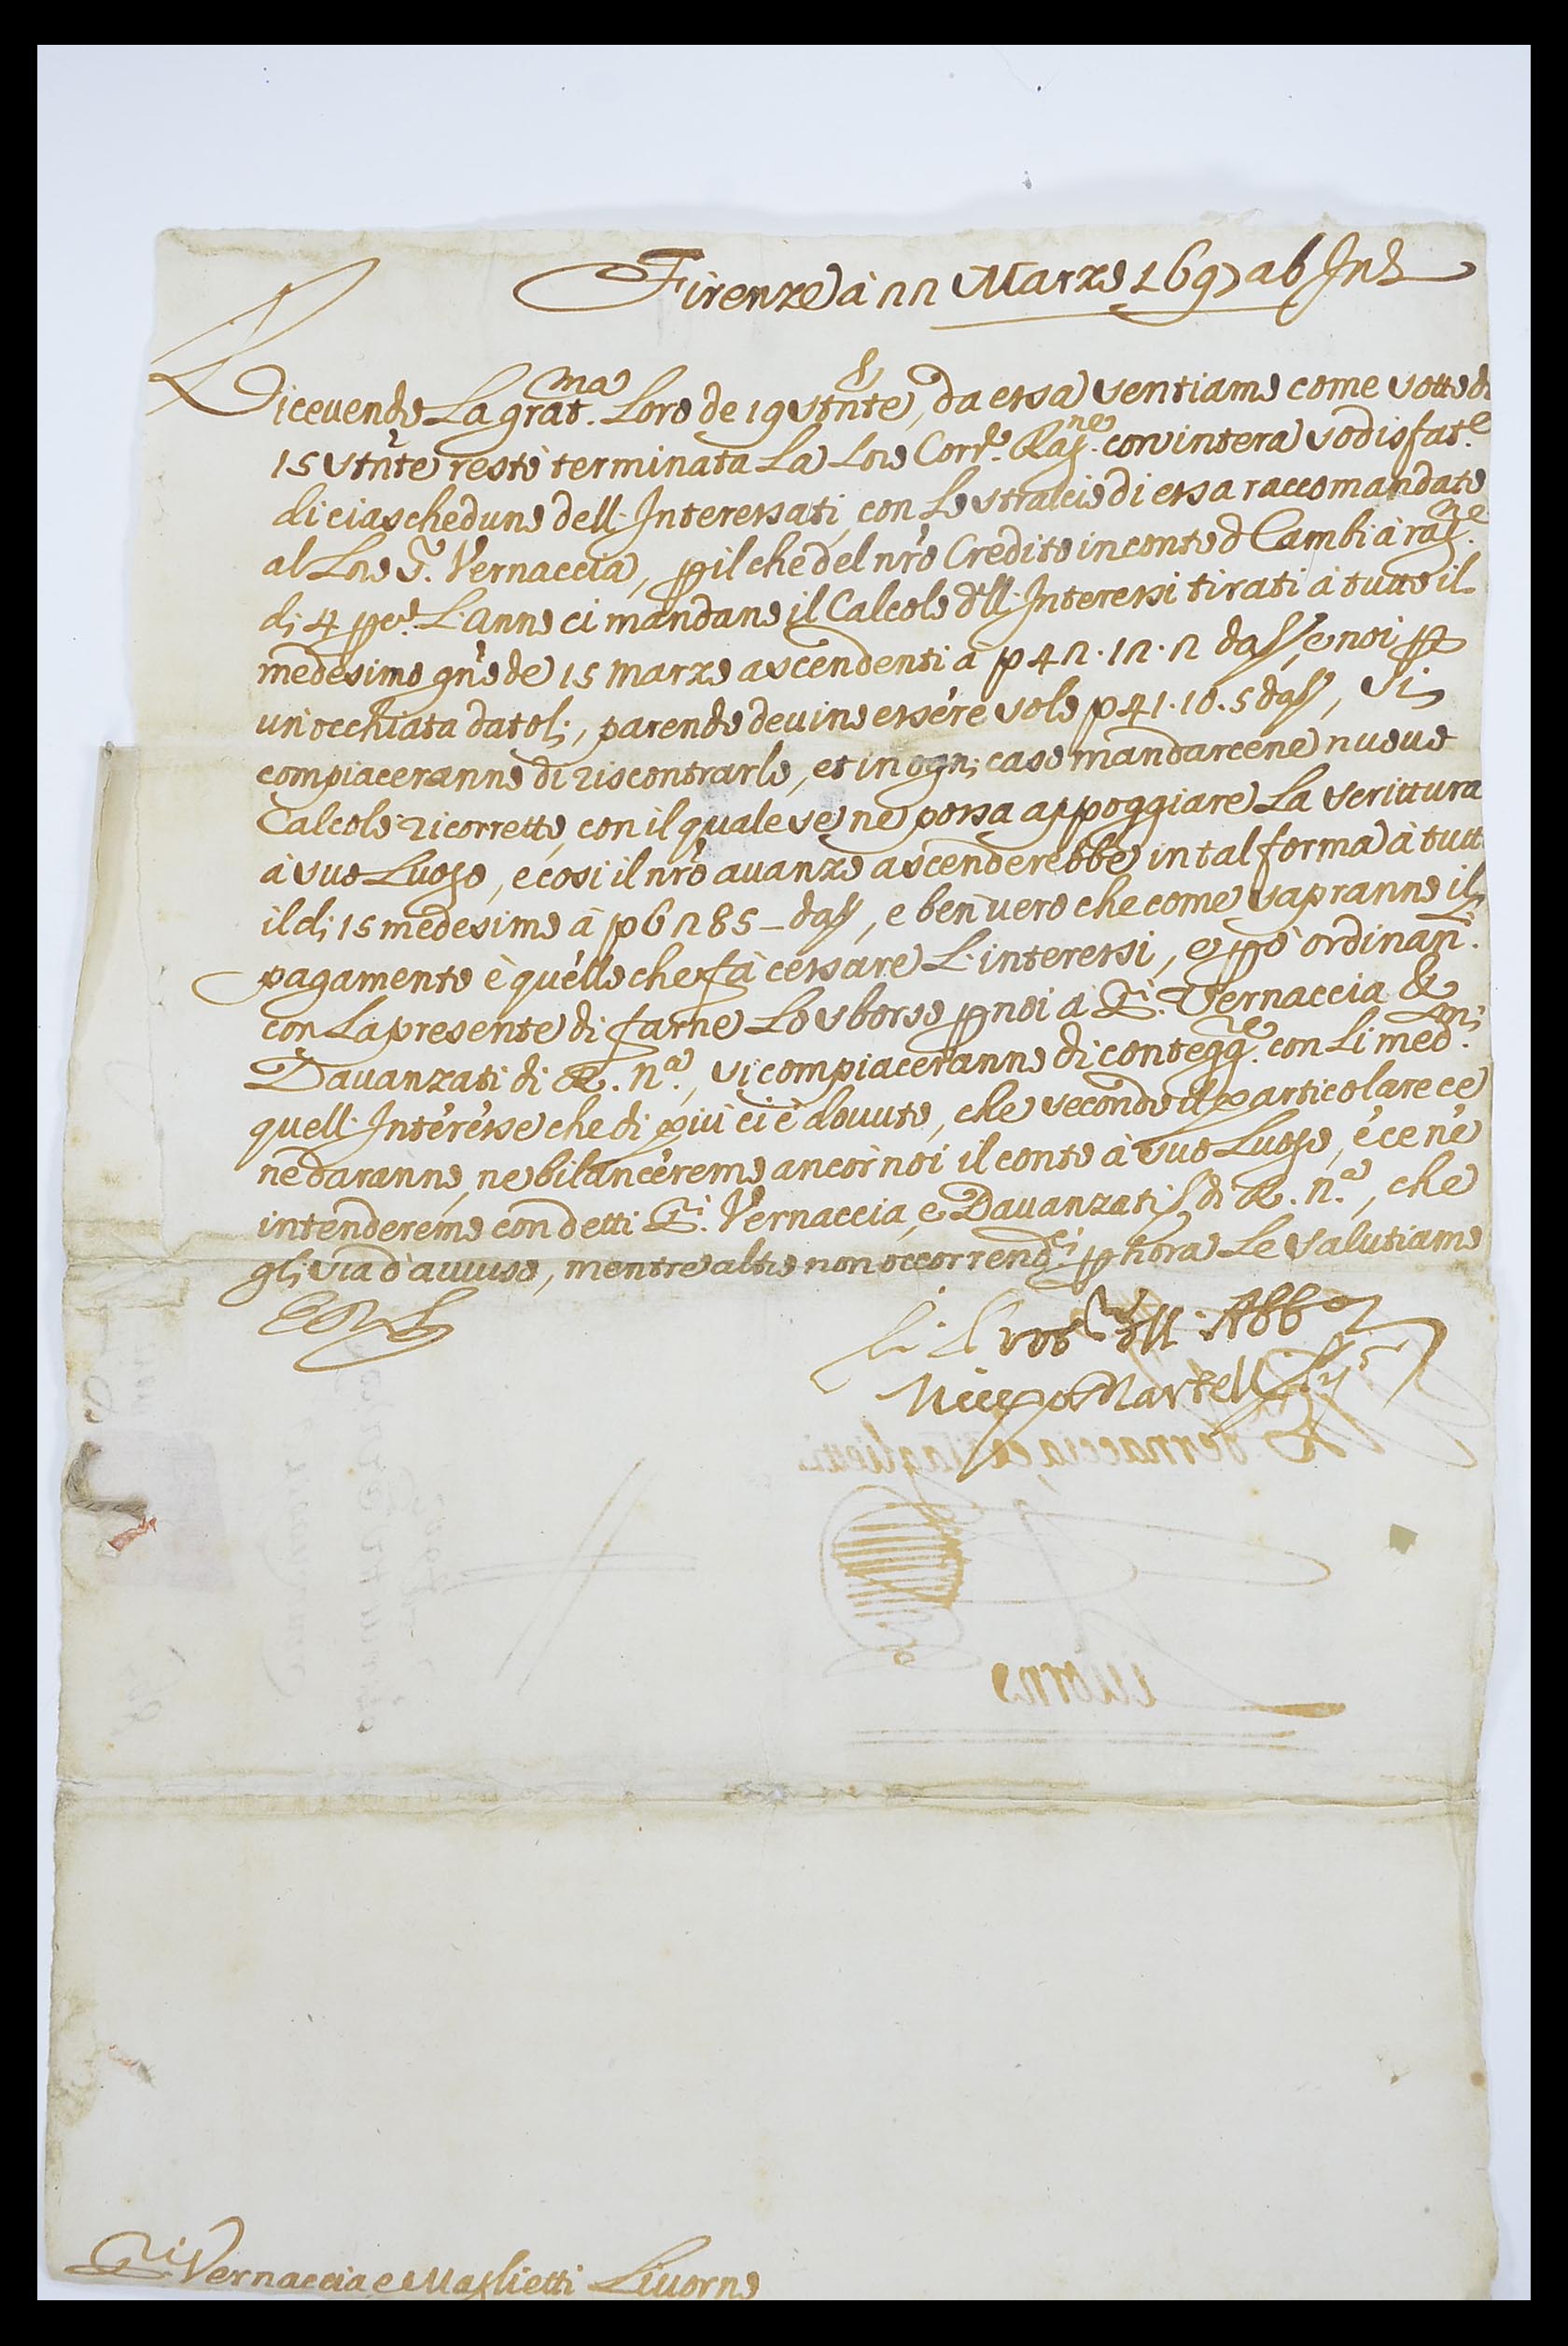 Firenze à 22 Marzo 1697 ab Inc
Riceuendo La grat.ma Loro de 19 stnte, da essa sentiamo come sotto di
15 stnte restò terminata La Loro Cord.e Rag.ne con intera sodisfat.e
di ciascheduno dell. Interessati, con Lo stralcio di essa raccomandato
al Loro S. Vernaccia, p il che del nrõ Credito in conto d Cambi à rag.ne
di 4 p c.o L'anno ci mandano il Calcolo d'll. Interessi tirati à tutto il
medesimo gno de 15 marzo ascendenti à p 42.12.2 da 8/, e noi p
un'occhiata datoli, parendo deuino essere solo p 41.10.5 da 8/, si
compiaceranno di riscontrarlo, et in ogni caso mandarcene nuouo
Calcolo ricorretto, con il quale se ne possa appoggiare La scrittura
à suo Luogo, e così il nrõ auanzo ascenderebbe in tal forma à tutt
il di 15 medesimo à p 6285 – da 8/, e ben uero che come sapranno il
pagamento è quello che fà cessare L'interessi, e però ordinan.
con La presente di farne Lo sborso p noi à S.ri Vernaccia &
Dauanzati di R. n.a, si compiaceranno di contegg.re con Li med.mi
quell. Interesse che di più ci è douuto, che secondo il particolare ce
ne daranno, ne bilanceremo ancor noi il conto à suo Luogo, e ce ne
intenderemo con detti S.ri Vernaccia, e Dauanzati di R. n.a, che
gli sia d'auuiso, mentre altro non occorrendci p hora Le salutiamo
Niccolò Martelli
R Vernaccia, e Maglietti
Liuorno
S.ri Vernaccia e Maglietti Liuorno